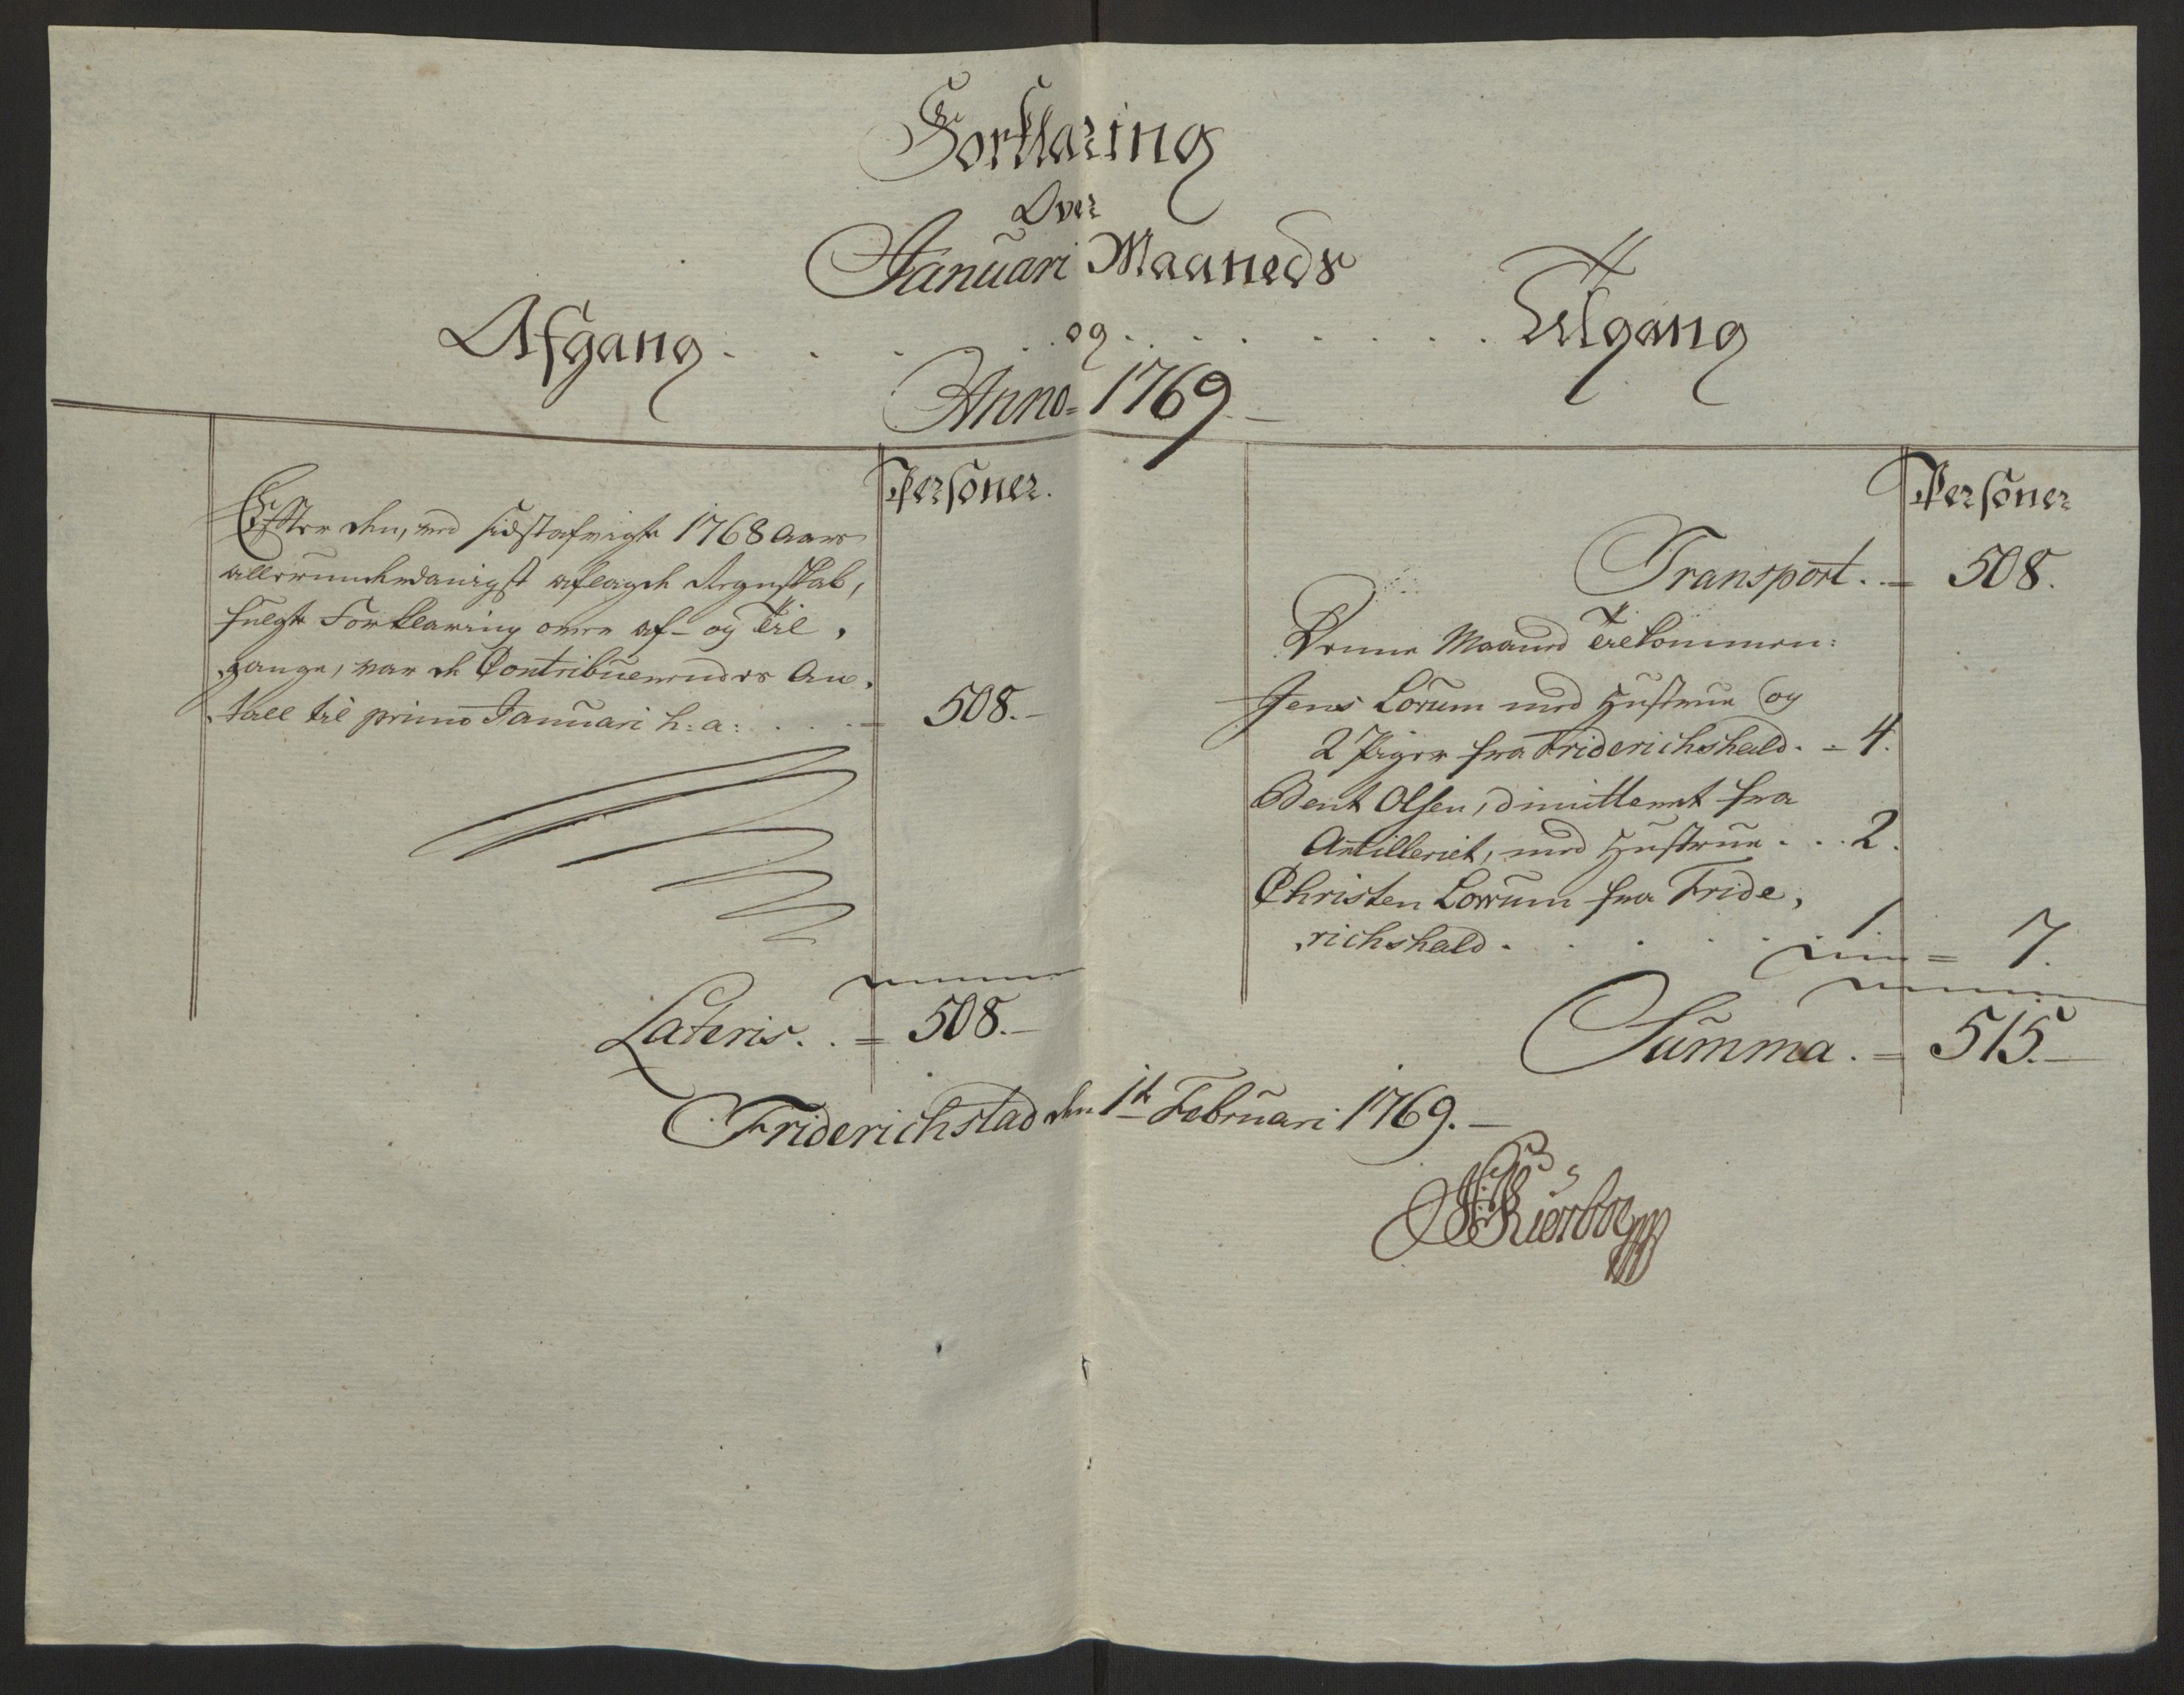 Forklaring
Over
Januari Maaneds
Afgang . . . . . og . . . . . . Tilgang
Anno 1769
Personer.
Efter den, med sidstafvigte 1768 Aars
allerunderdanigst aflagde Regnskab,
fulgte Forklaring over af- og Til,
gange, var de Contribuerendes An,
tall til primo Januari h: a: . . . . = 508.
Lateris. . = 508.
Personer
Transport . . = 508.
Denne Maaned Tilkommen:
Jens Lorum med Hustrue og
2 Piger fra Friderichshald . = 4.
Bent Olsen, dimitteret fra
Artilleriet, med Hustrue . . . 2.
Christen Lorrum fra Fride,
richshald . . . . . . 1 = 7.
Summa . = 515.
Friderichstad den 1te Februari 1769.